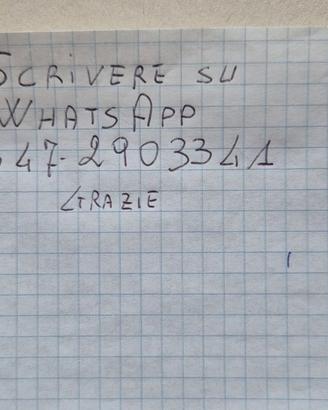 SCRIVERE SU
WHATSAPP
347-2903341
GRAZIE